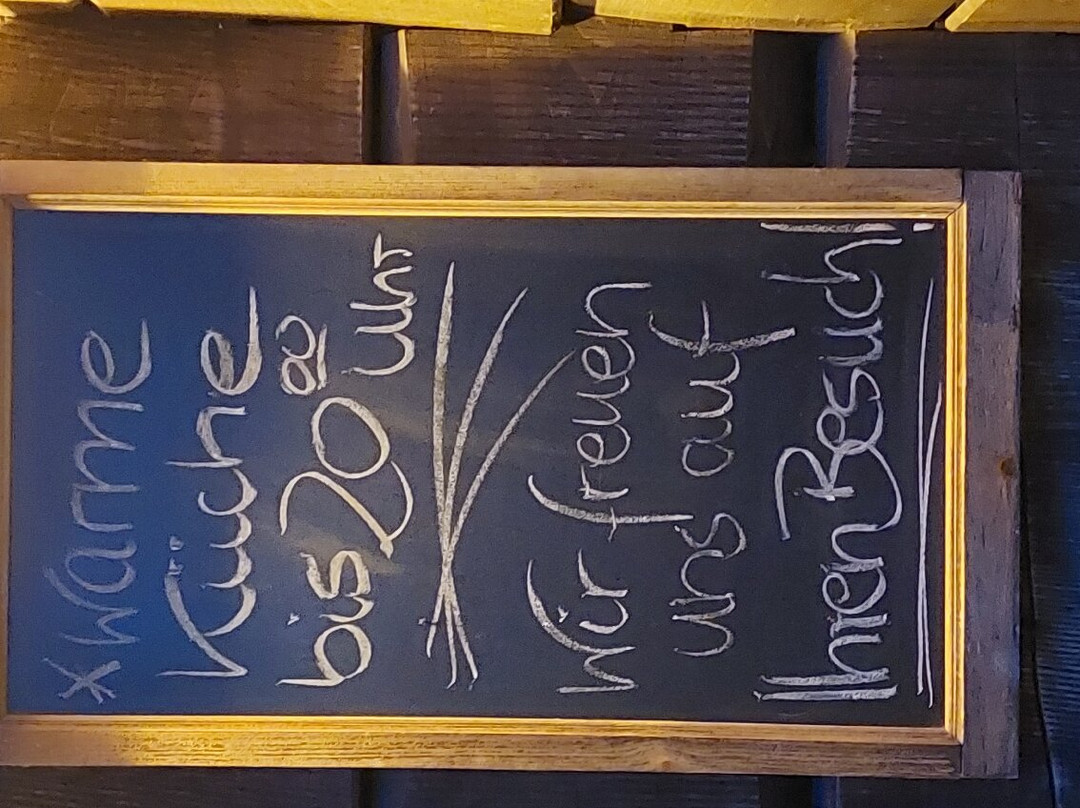 * Warme
Küche
bis 20 00 Uhr
Wir freuen
uns auf
Ihren Besuch!